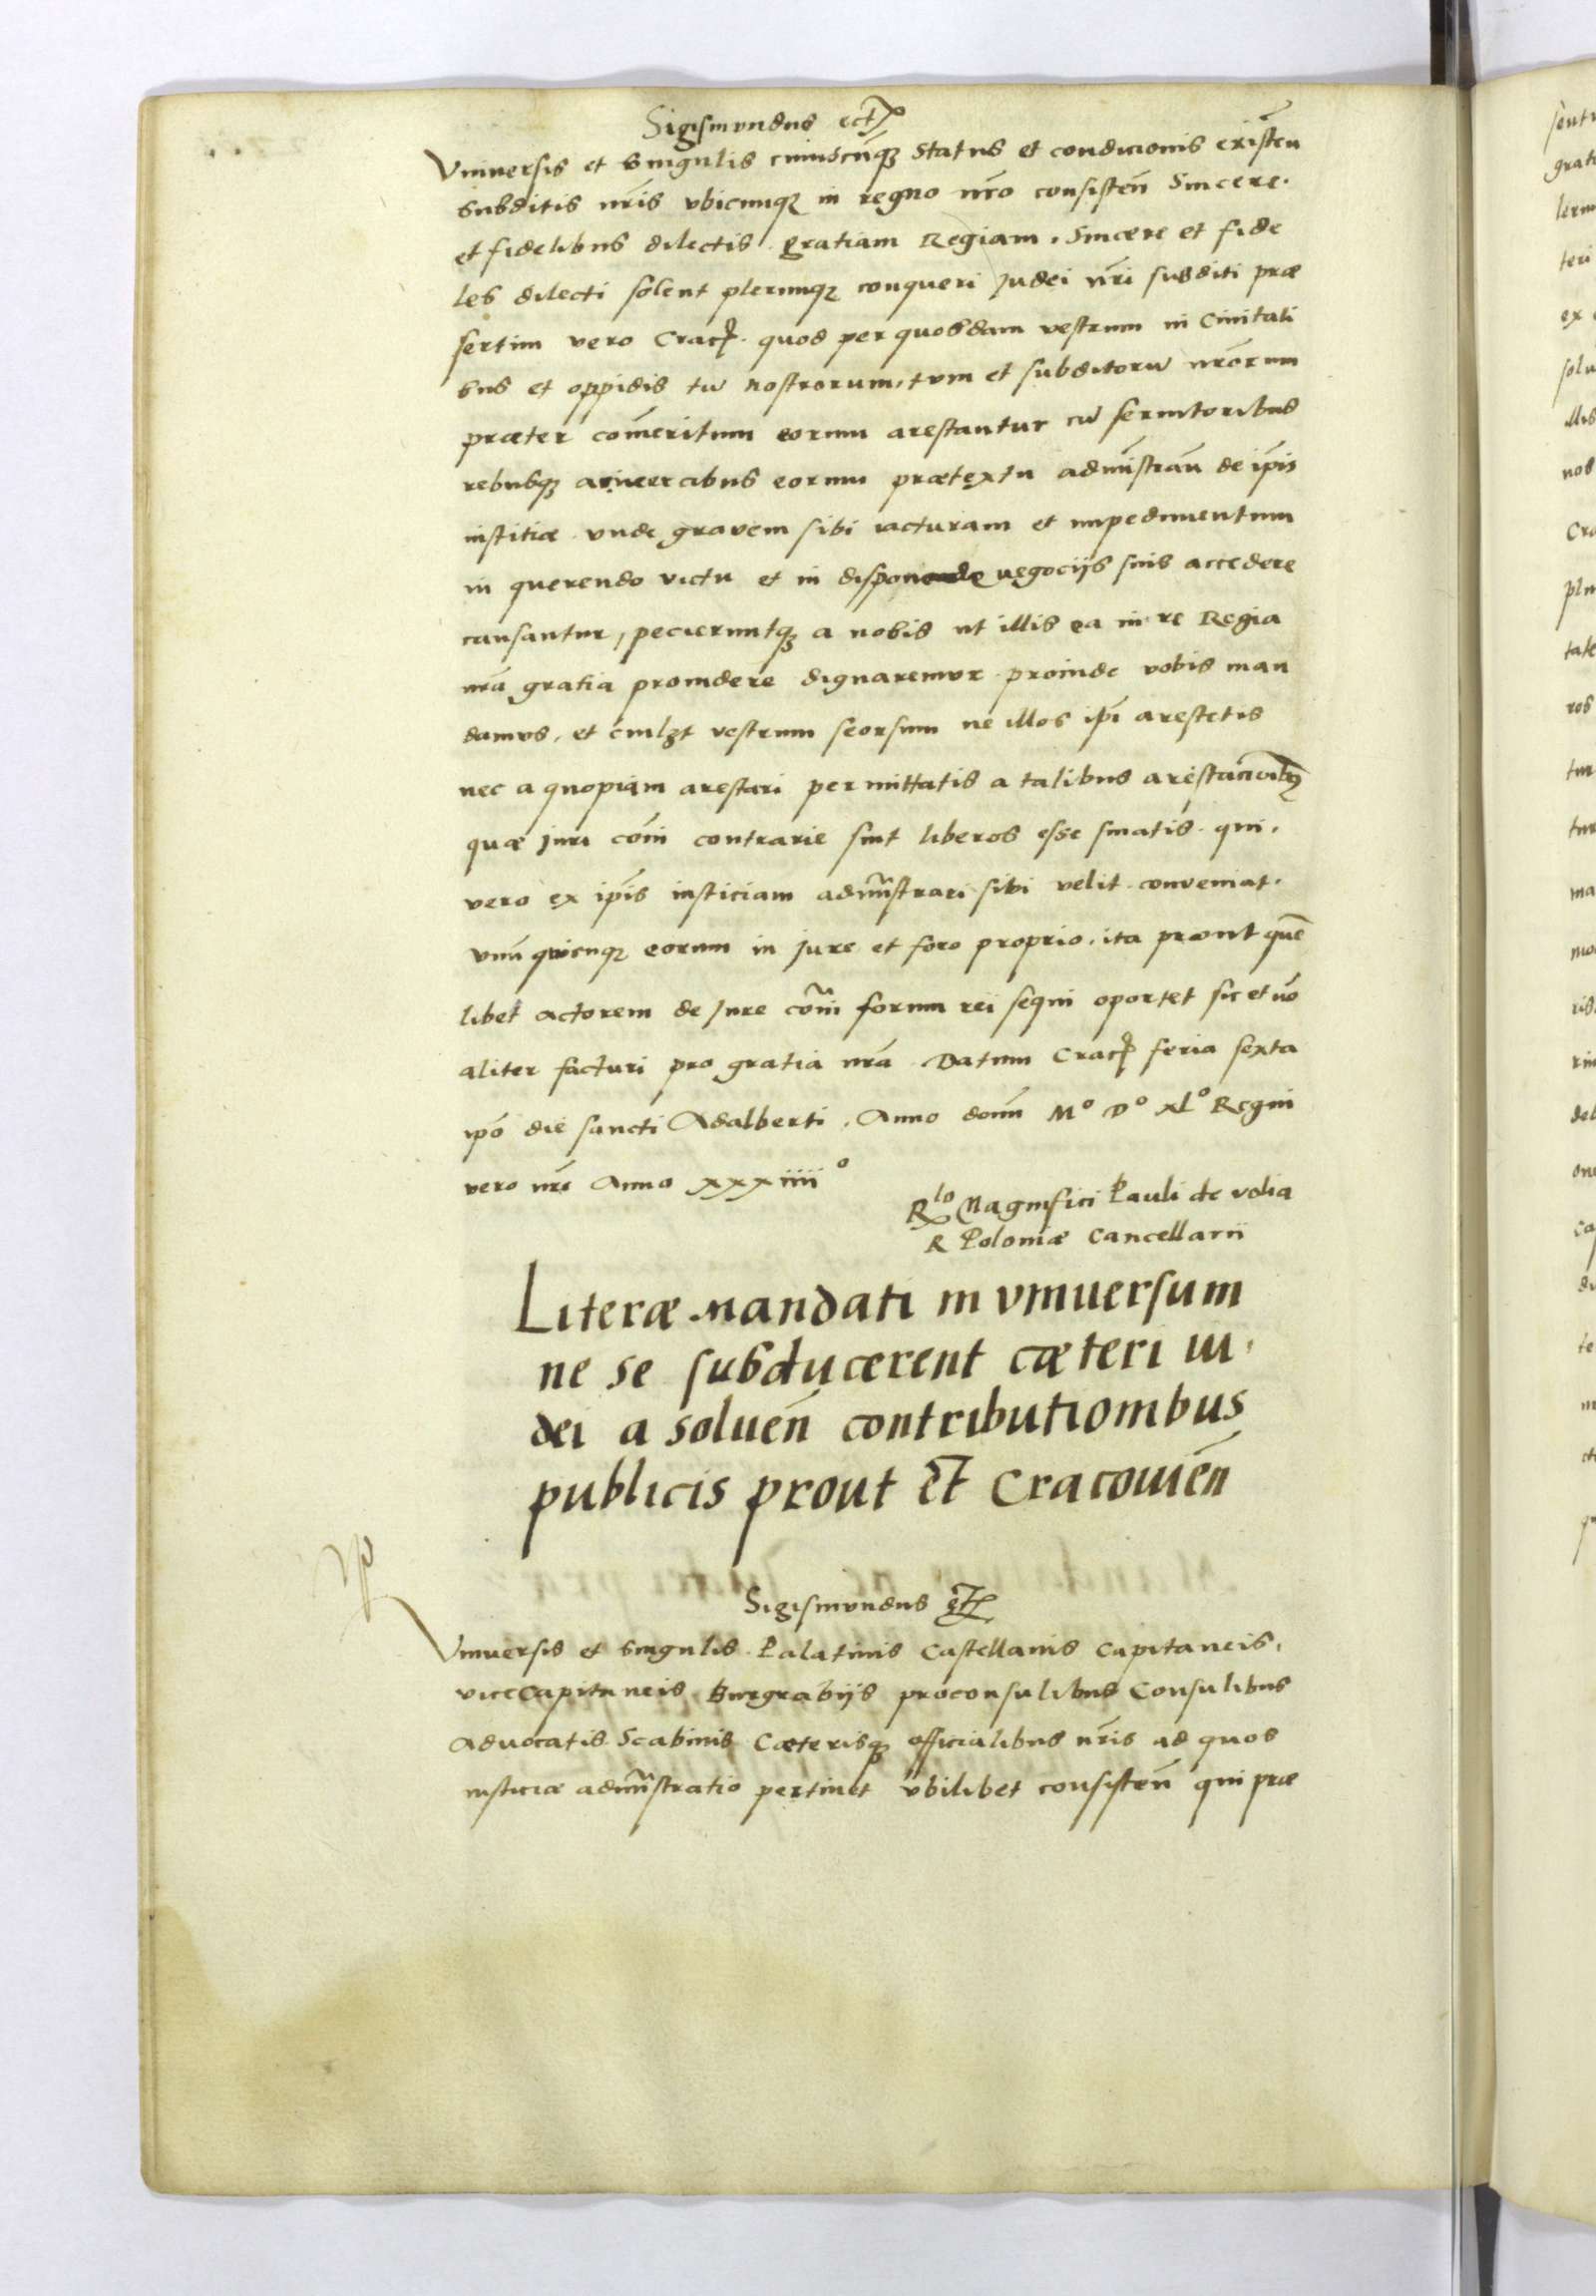 Sigismundus ect
Vniuersis et Singulis cuiuscunqꝫ Status et condicionis existen̄
subditis nr̄is vbicunqꝫ in regno nr̄o consisten̄ Sincere.
et fidelibus dilectis gratiam Regiam. Sincere et fide
les dilecti solent plerunqꝫ conqueri Judei nr̄i subditi præ
sertim vero Crac. quod per quosdam vestrum in Ciuitati
bus et oppidis tū nostrorum, tum et subditorū nr̄orum
præter com̄eritum eorum arestantur cū seruitoribus
rebusqꝫ ac mercibus eorum prætextu admīstran̄ de ip̄is
iustitiæ vnde gravem sibi iacturam et impedimentum
in querendo victu et in disponende negocijs suis accedere
causantur, pecieruntqꝫ a nobis ut illis ea in re Regia
nr̄a gratia prouidere dignaremur proinde vobis man
damus, et cuilꝫt vestrum seorsum ne illos ip̄i arestetis
nec a quopiam arestari permittatis a talibus arestacionibꝫ
quæ Juri com̄i contrarie sint liberos esse sinatis. qui.
vero ex ip̄is iusticiam admīstrari sibi velit conveniat.
vnūquicuqꝫ eorum in Jure et foro proprio, ita prout quē
libet actorem de Jure com̄i forum rei sequi oportet sic et nō
aliter facturi pro gratia nr̄a Datum Crac feria sexta
ip̄o die sancti Adalberti. Anno domī Mº Dº xLº Regni
vero nr̄i Anno xxxiiiiº
Rlo Magnifici Pauli de volia
R Poloniæ Cancellarii
Literæ mandati in vniuersum
ne se subducerent cæteri iu
dei a soluen̄ contributionibus
publicis prout et Cracouien̄
Sigismundus et
Vniuersis et Singulis Palatinis Castellanis Capitaneis.
viceCapitaneis Burgrabijs proconsulibus Consulibus
Aduocatis Scabinis Cæterisqꝫ officialibus nr̄is ad quos
iusticiæ admīstratio pertinet vbilibet consisten̄ qui præ